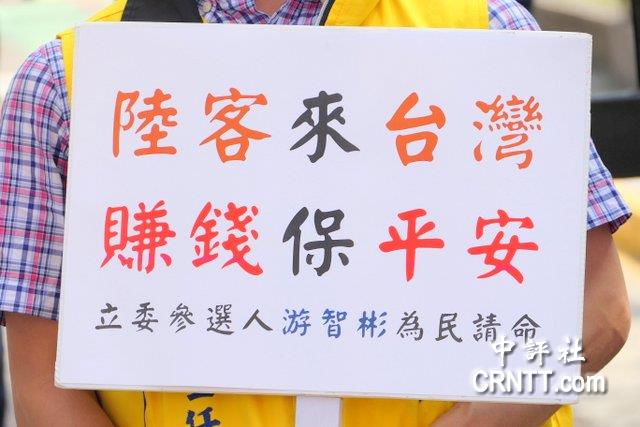 陸客來台灣
賺錢保平安
立委參選人游智彬為民請命
中評社
CRNTT.com